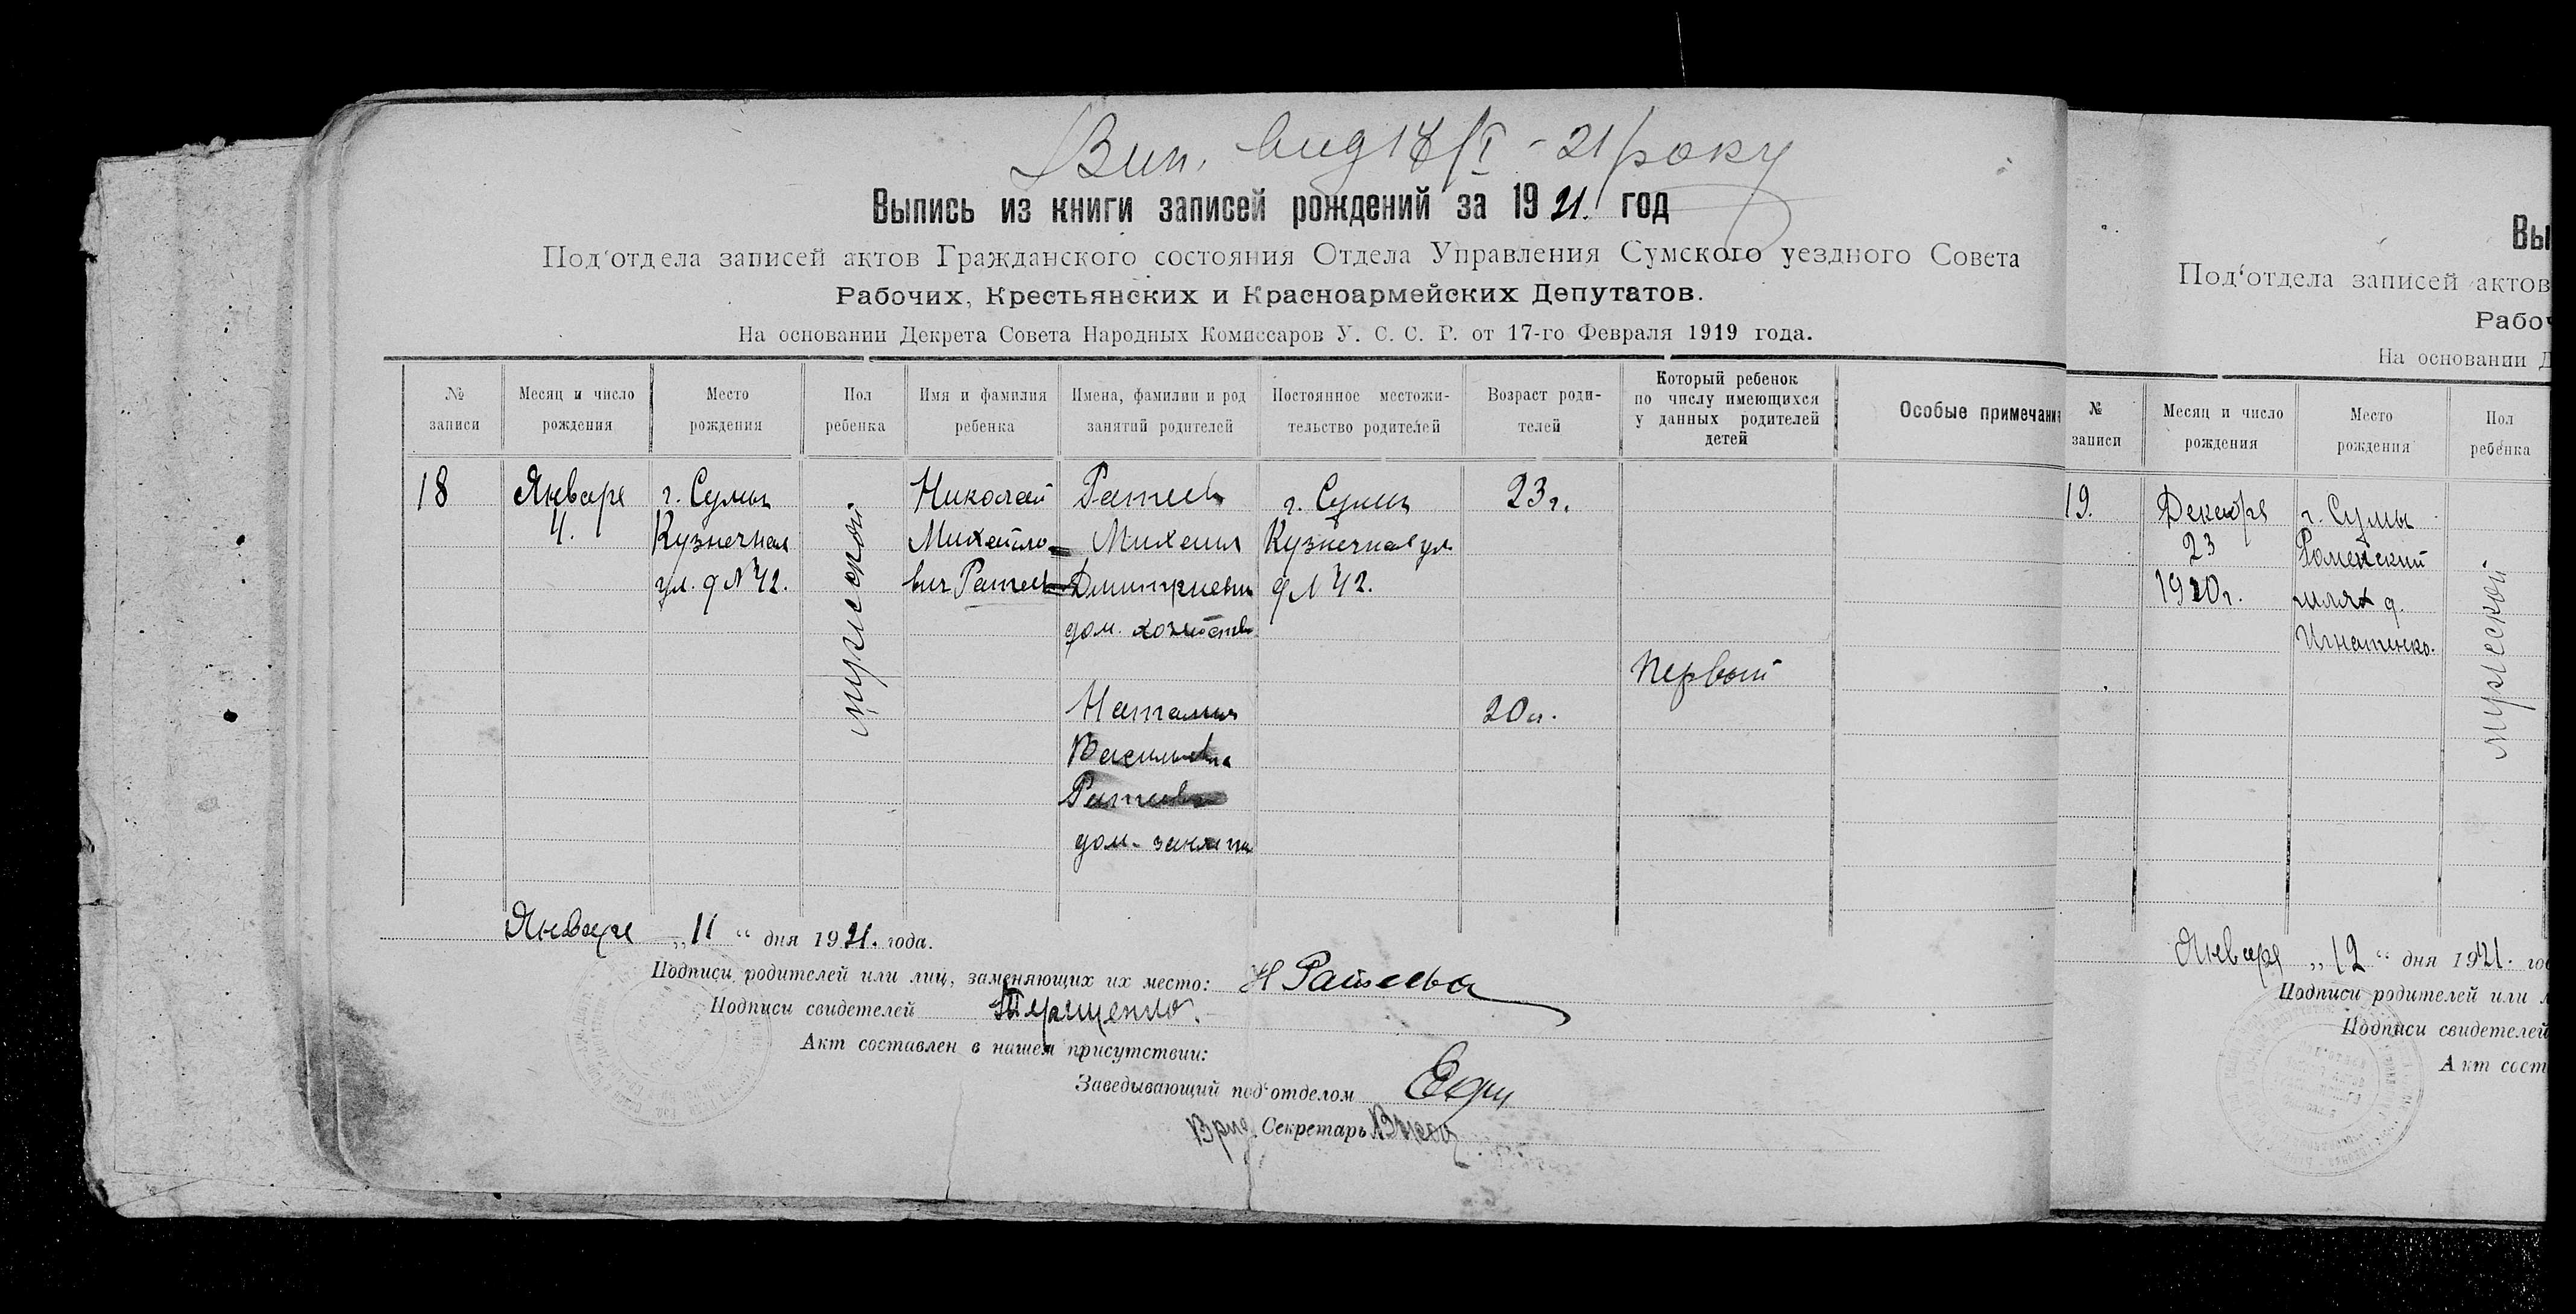 Вип. вид 18/I - 21 року
Выпись из книги записей рождений за 1921. год
Под‘отдела записей актов Гражданского состояния Отдела Управления Сумского уездного Совета
Рабочих, Крестьянских и Красноармейских Депутатов.
На основании Декрета Совета Народных Комиссаров У. С. С. Р. от 17-го Февраля 1919 года.
№ записи
Месяц и число рождения
Место рождения
Пол ребенка
Имя и фамилия ребенка
Имена, фамилии и род занятий родителей
Постоянное местожительство родителей
Возраст родителей
Который ребенок по числу имеющихся у данных родителей детей
Особые примечания
18
Января
4.
г. Сумы
Кузнечная
ул. д № 42.
мужеской
Николай
Михайло-
вич Ратеев
Ратеев
Михаил
Дмитриевич
дом. хозяйство
Наталия
Васильевна
Ратеева
дом. занятия
г. Сумы
Кузнечная ул
д № 42.
23 г.
20 л.
Первый
Января „11“ дня 1921. года.
Подписи родителей или лиц, заменяющих их место: Н Ратеева
Подписи свидетелей Терещенко.
Акт составлен в нашем присутствии:
Заведывающий под‘отделом
Врид. Секретарь
Вы
Под‘отдела записей актов
Рабоч
На основании Д
№ записи
Месяц и число рождения
Место рождения
Пол ребенка
19.
Декабря
23
1920 г.
г. Сумы
Роменский
шлях д.
Игнатенко.
мужеской
Января „12“ дня 1921. го
Подписи родителей или л
Подписи свидетелей
Акт сост